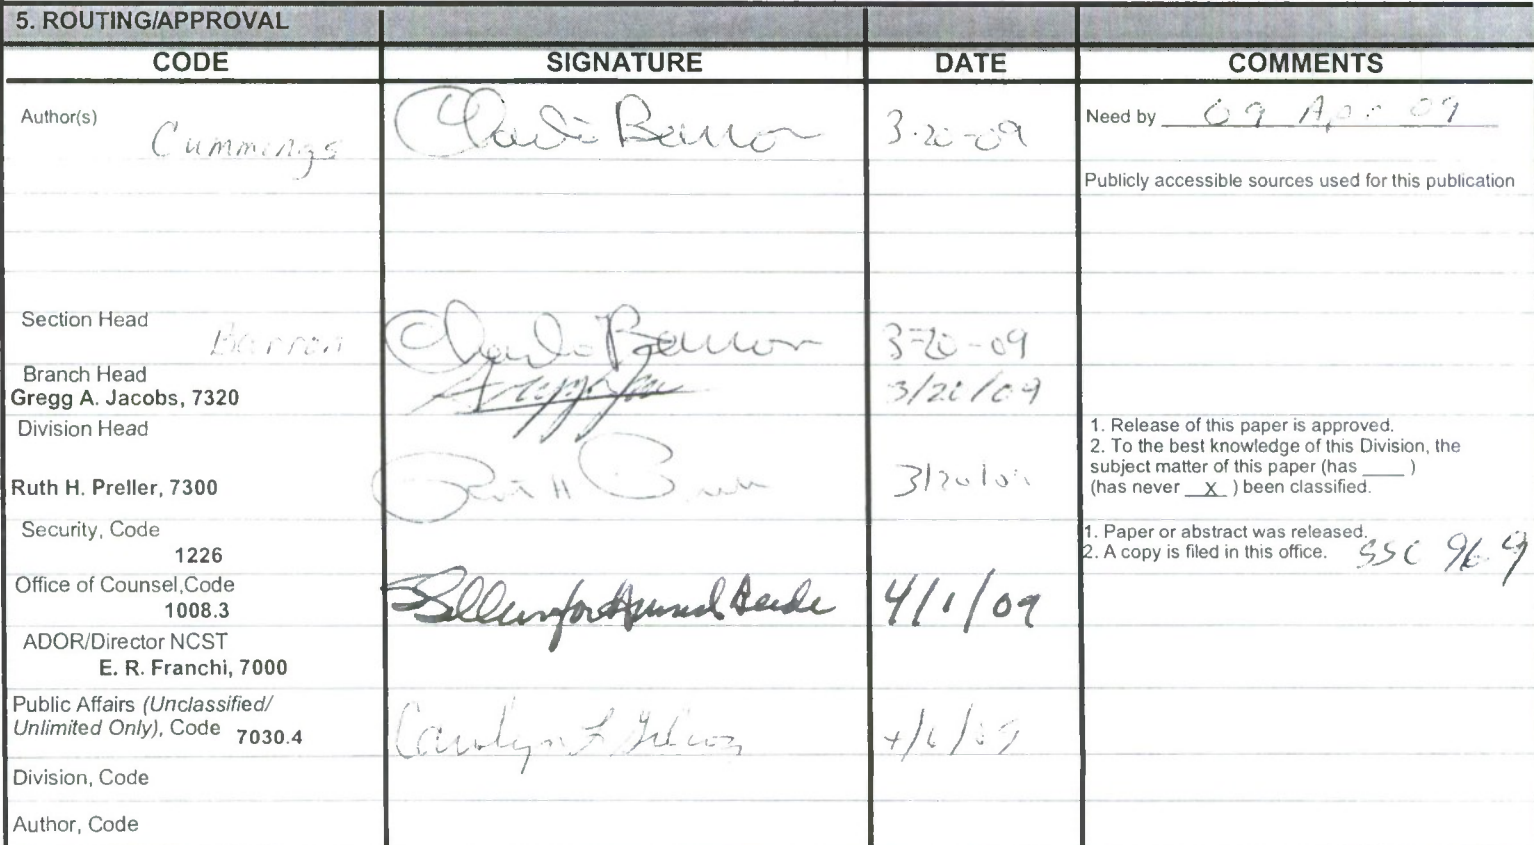 5. ROUTING/APPROVAL
CODE SIGNATURE DATE COMMENTS
Author(s) Cummings Charlie Barron 3-20-09 Need by 09 Apr 09
Publicly accessible sources used for this publication
Section Head Barron Charlie Barron 3-20-09
Branch Head
Gregg A. Jacobs, 7320 3/20/09
Division Head
Ruth H. Preller, 7300 3/20/09
1. Release of this paper is approved.
2. To the best knowledge of this Division, the
subject matter of this paper (has ____ )
(has never x ) been classified.
Security, Code
1226
1. Paper or abstract was released.
2. A copy is filed in this office. SSC 969
Office of Counsel,Code
1008.3 4/1/09
ADOR/Director NCST
E. R. Franchi, 7000
Public Affairs (Unclassified/
Unlimited Only), Code 7030.4 Carolyn 4/6/09
Division, Code
Author, Code